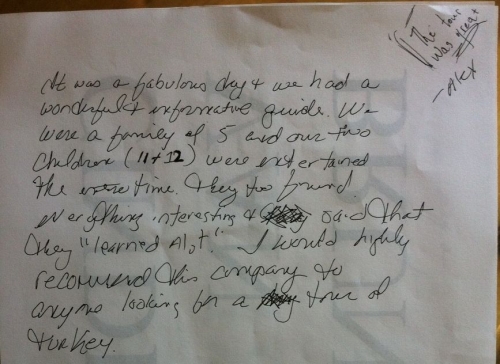 "The tour
was great"
- Alex
It was a fabulous day + we had a
wonderful & informative guide. We
were a family of 5 and our two
children (11+12) were entertained
the entire time. They too found
everything interesting & said that
they "learned Alot!" I would highly
recommend this company to
anyone looking for a tour of
turkey.